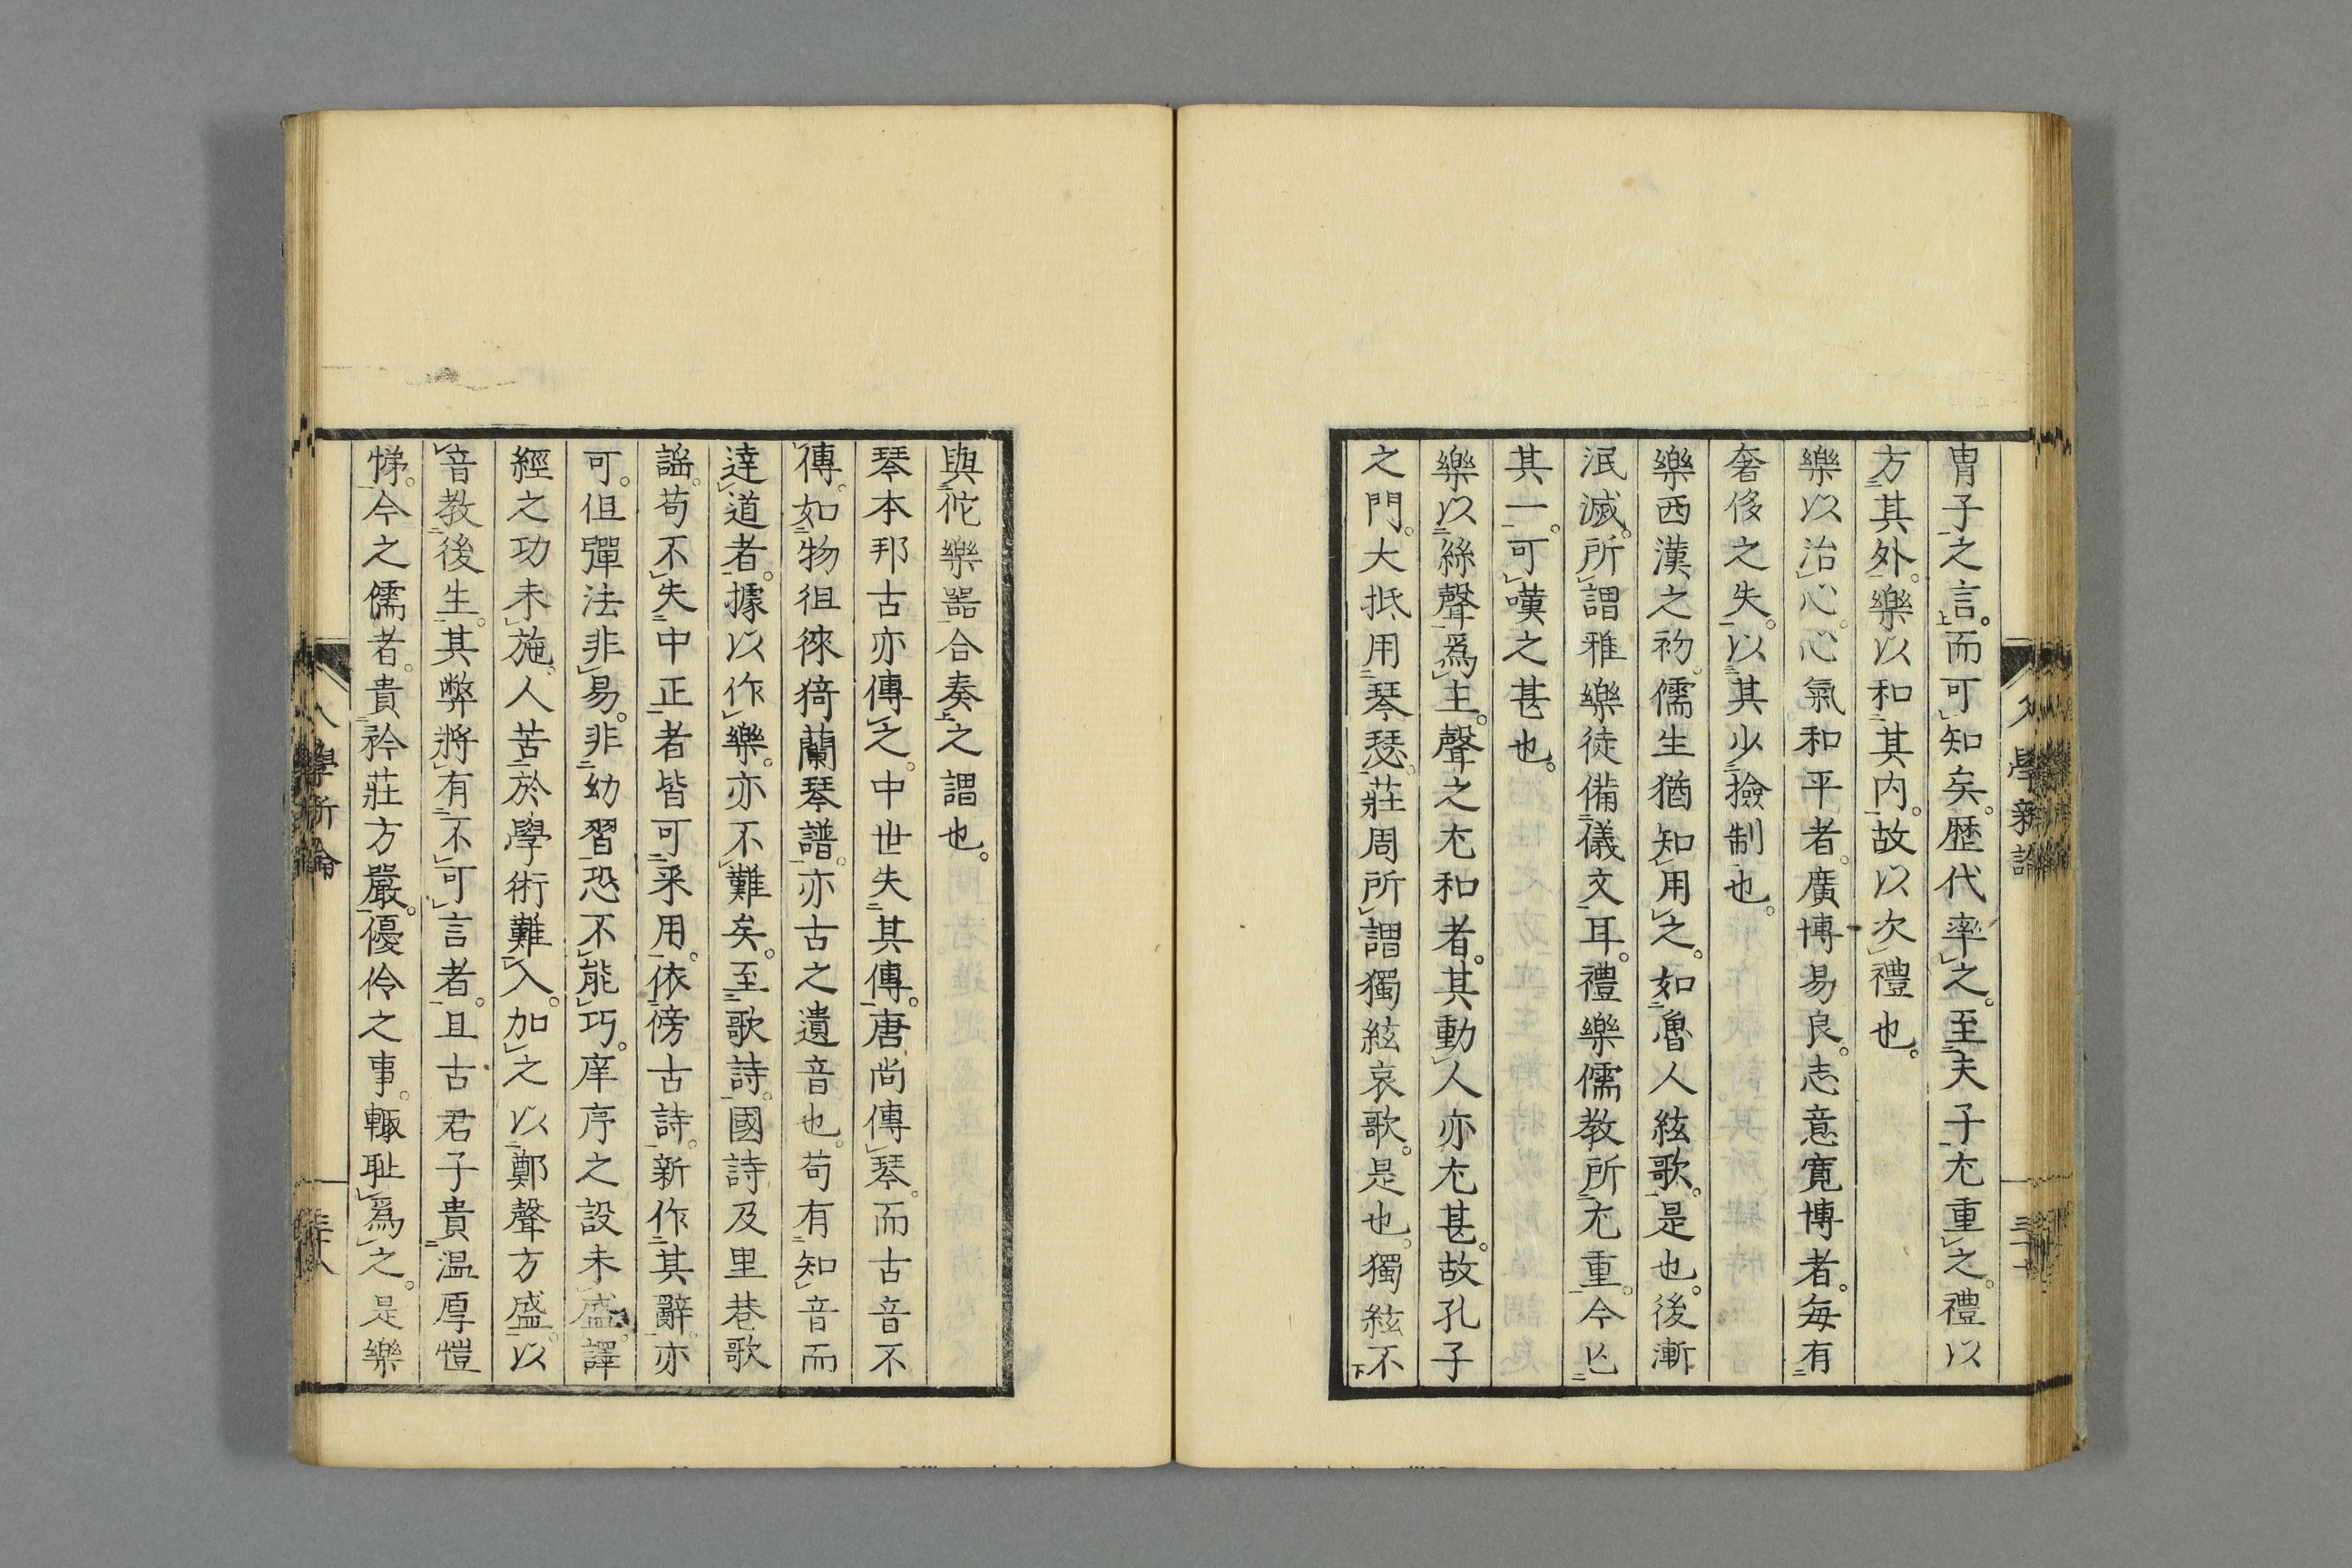 冑子之言。而可知矣。歷代率之。至夫子尤重之。禮以
方其外。樂以和其內。故以次禮也。
樂以治心。心氣和平者。廣博易良。志意寬博者。每有
奢侈之失。以其少撿制也。
樂西漢之初。儒生猶知用之。如魯人絃歌。是也。後漸
泯滅。所謂雅樂徒備儀文耳。禮樂儒教所尤重。今亾
其一。可嘆之甚也。
樂以絲聲爲主。聲之尤和者。其動人亦尤甚。故孔子
之門。大抵用琴瑟。莊周所謂獨絃哀歌。是也。獨絃不
與佗樂器合奏之謂也。
琴本邦古亦傳之。中世失其傳。唐尚傳琴。而古音不
傳。如物徂徠猗蘭琴譜。亦古之遺音也。苟有知音而
達道者。據以作樂。亦不難矣。至歌詩。國詩及里巷歌
謠。苟不失中正者皆可采用。依傍古詩。新作其辭。亦
可。但彈法非易。非幼習恐不能巧。庠序之設未盛。譯
經之功未施。人苦於學術難入。加之以鄭聲方盛。以
音教後生。其弊將有不可言者。且古君子貴溫厚愷
悌。今之儒者。貴矜莊方嚴。優伶之事。輙耻爲之。是樂